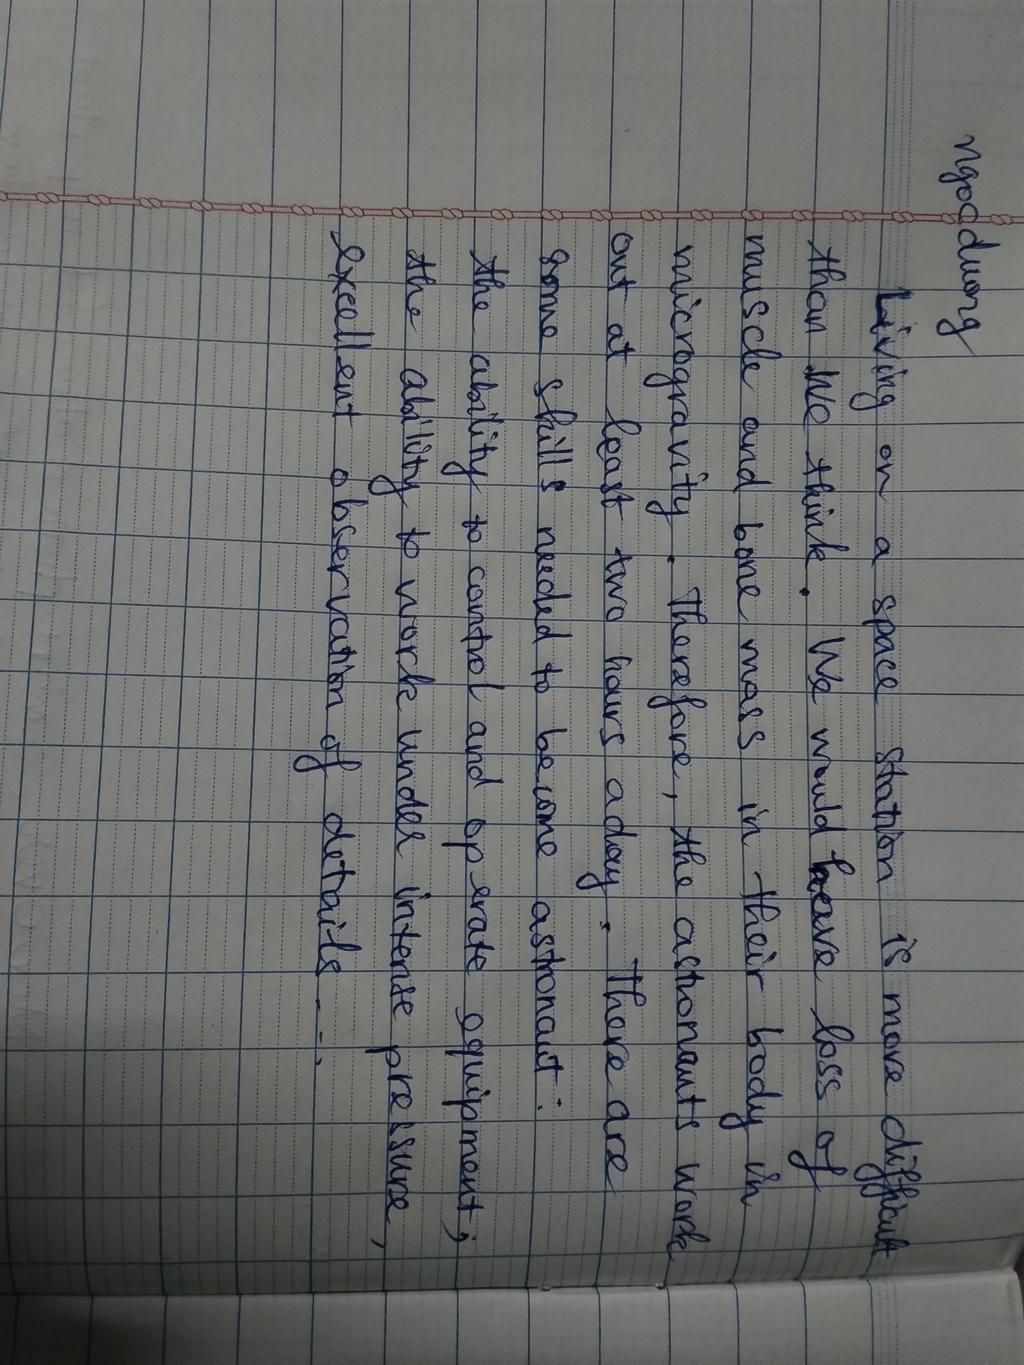 ngocdương
Living on a space station is more difficult
than we think. We would have loss of
muscle and bone mass in their body in
microgravity. Therefore, the astronants work
out at least two hours a day. There are
some skills needed to become astronaut:
the ability to control and operate equipment,
the ability to work under intense pressure,
excellent observation of details...